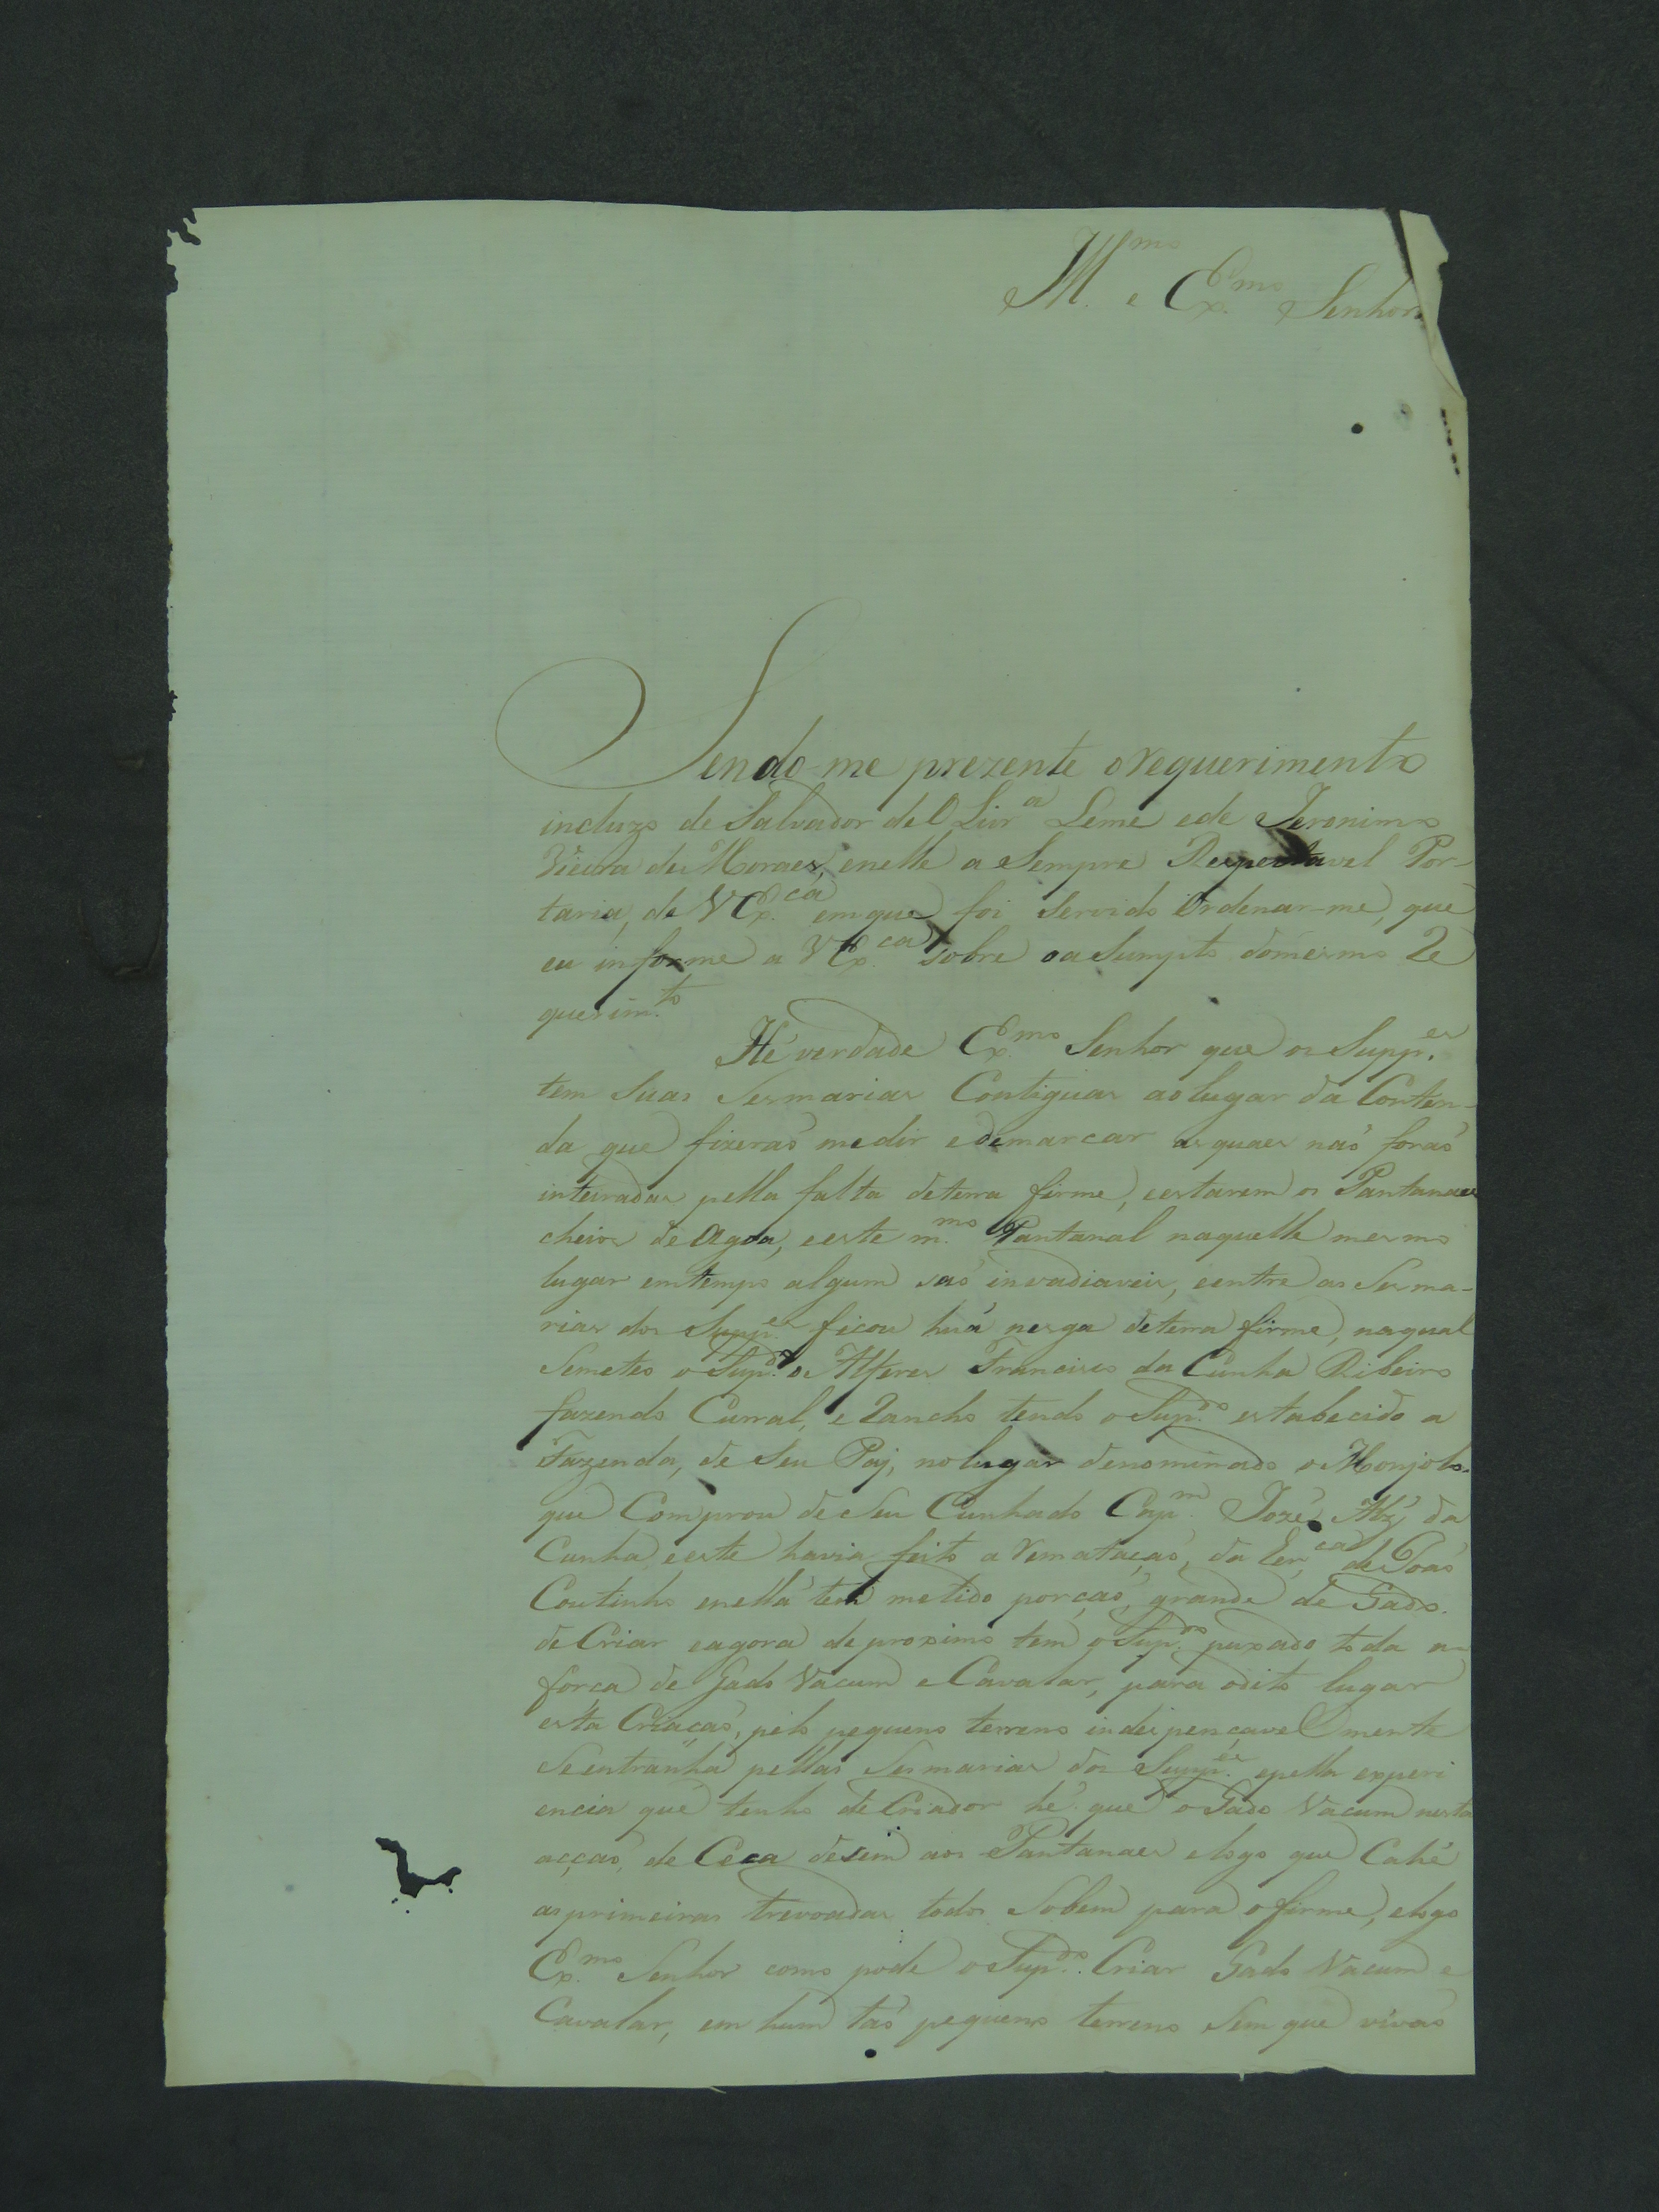 Ill.mo e Ex.mo Senhor
Sendo-me prezente o requerimento
incluzo de Salvador de Olivr.a Leme ede Jeronimo
Vieira de Moraes, enelle a Sempre Respeitavel Por-
taria, de V Ex.ca emque foi Servido Ordenar-me, que
eu informe a V Ex.ca sobre oaSumpto domesmo Re
querim.to
Hé verdade Ex.mo Senhor que os Supp.es
tem Suas Sesmarias Contiguas aolugar da Conten-
da que fizeraõ medir edemarcar as quaes naõ foraõ
inteiradas pella falta deterra firme, eestarem os Pantanaes
cheios de Agoa, eeste m.mo Pantanal naquelle mesmo
lugar emtempo algum saõ invadiaveis, eentre as Sesma-
rias dos Supp.es ficou huã nesga deterra firme, naqual
Semeteo o Sup.do o Alferes Francisco da Cunha Ribeiro
fazendo Curral, e Rancho tendo o Sup.do estabecido a
Fazenda, de Seu Paj, nolugar denominado o Monjolo
que Comprou de Seu Cunhado Cap.m Jozé Alz' da
Cunha, eeste havia feito a rematacaõ, da de Joaõ
Coutinho enella tem metido porcaõ, grande de Gado.
de Criar eagora de proximo tem o Sup.do puxado toda a
forca de Gado Vacum e Cavalar, para odito lugar
esta Criacaõ, pelo pequeno terreno indespencavelmente
Seentranha pellas Sesmarias dos Supp.es epella experi
encia que tenho de Criador hé que o Gado Vacum nesta
accaõ, de Ceca desem aos Pantanaes elogo que Cahé
asprimeiras trevoadas todos Sobem para ofirme, elogo
Ex.mo Senhor como pode o Sup.do Criar Gado Vacum e
Cavalar, em hum taõ pequeno terreno Sem que vivaõ